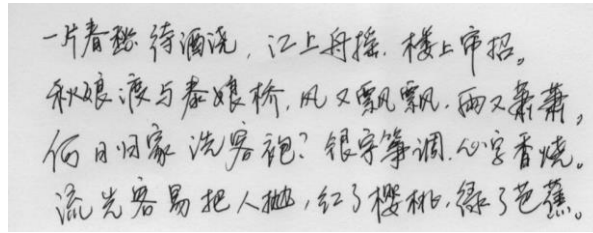 一片春愁待酒浇,江上舟摇.楼上帘招。
秋娘渡与泰娘桥,风又飘飘.雨又萧萧,
何日归家洗客袍?银字筝调.心字香烧。
流光容易把人抛,红了樱桃.绿了芭蕉。